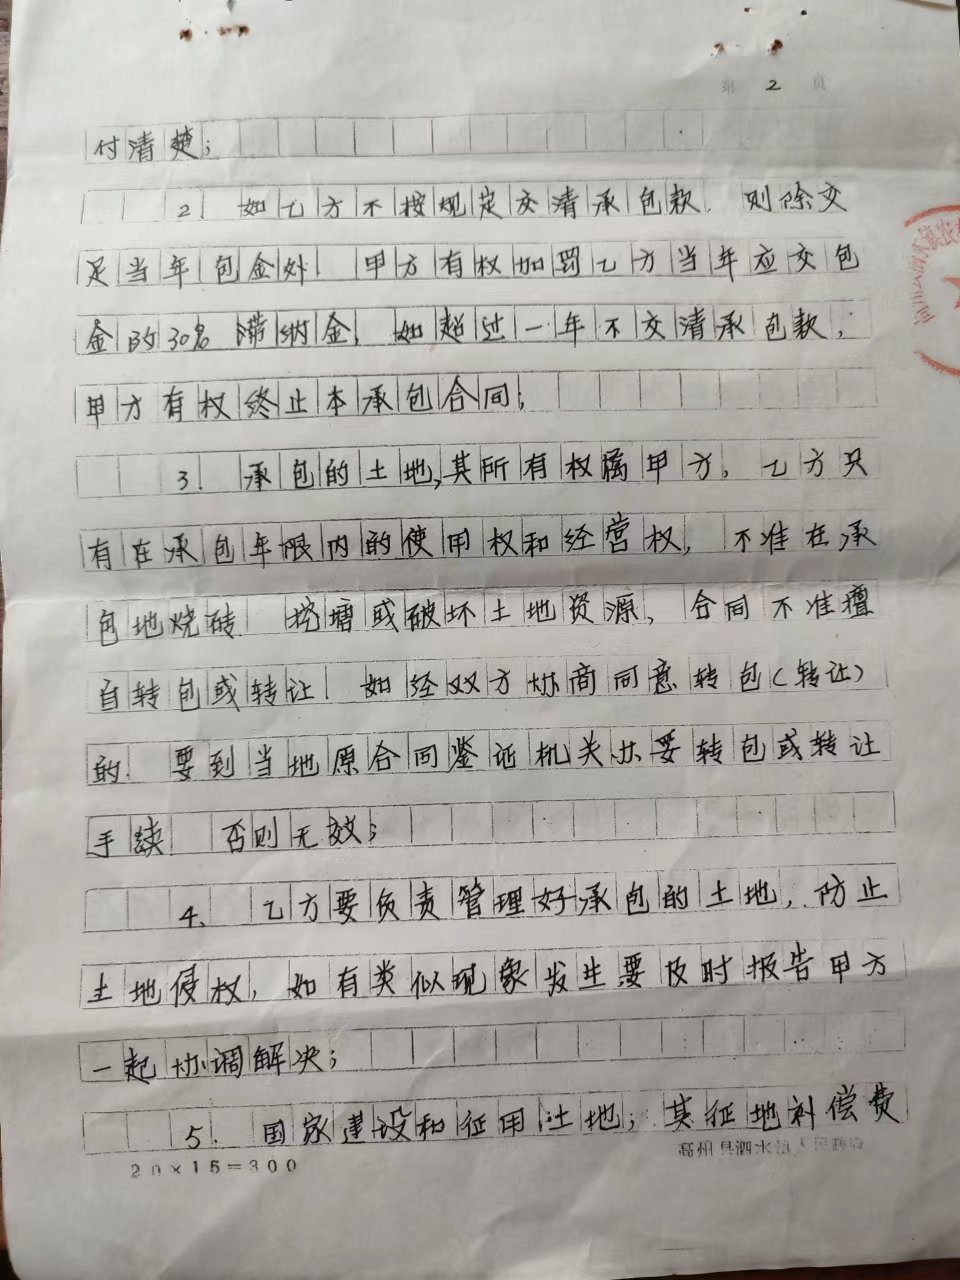 第 2 页
付清楚；
2. 如乙方不按规定交清承包款，则除交
足当年包金外，甲方有权加罚乙方当年应交包
金的30%滞纳金，如超过一年不交清承包款，
甲方有权终止本承包合同；
3. 承包的土地，其所有权属甲方。乙方只
有在承包年限内的使用权和经营权，不准在承
包地烧砖、挖塘或破坏土地资源，合同不准擅
自转包或转让，如经双方协商同意转包（转让）
的，要到当地原合同鉴证机关办妥转包或转让
手续，否则无效；
4、乙方要负责管理好承包的土地，防止
土地侵权，如有类似现象发生要及时报告甲方
一起协调解决；
5. 国家建设和征用土地，其征地补偿费
20×15=300
高州县泗水